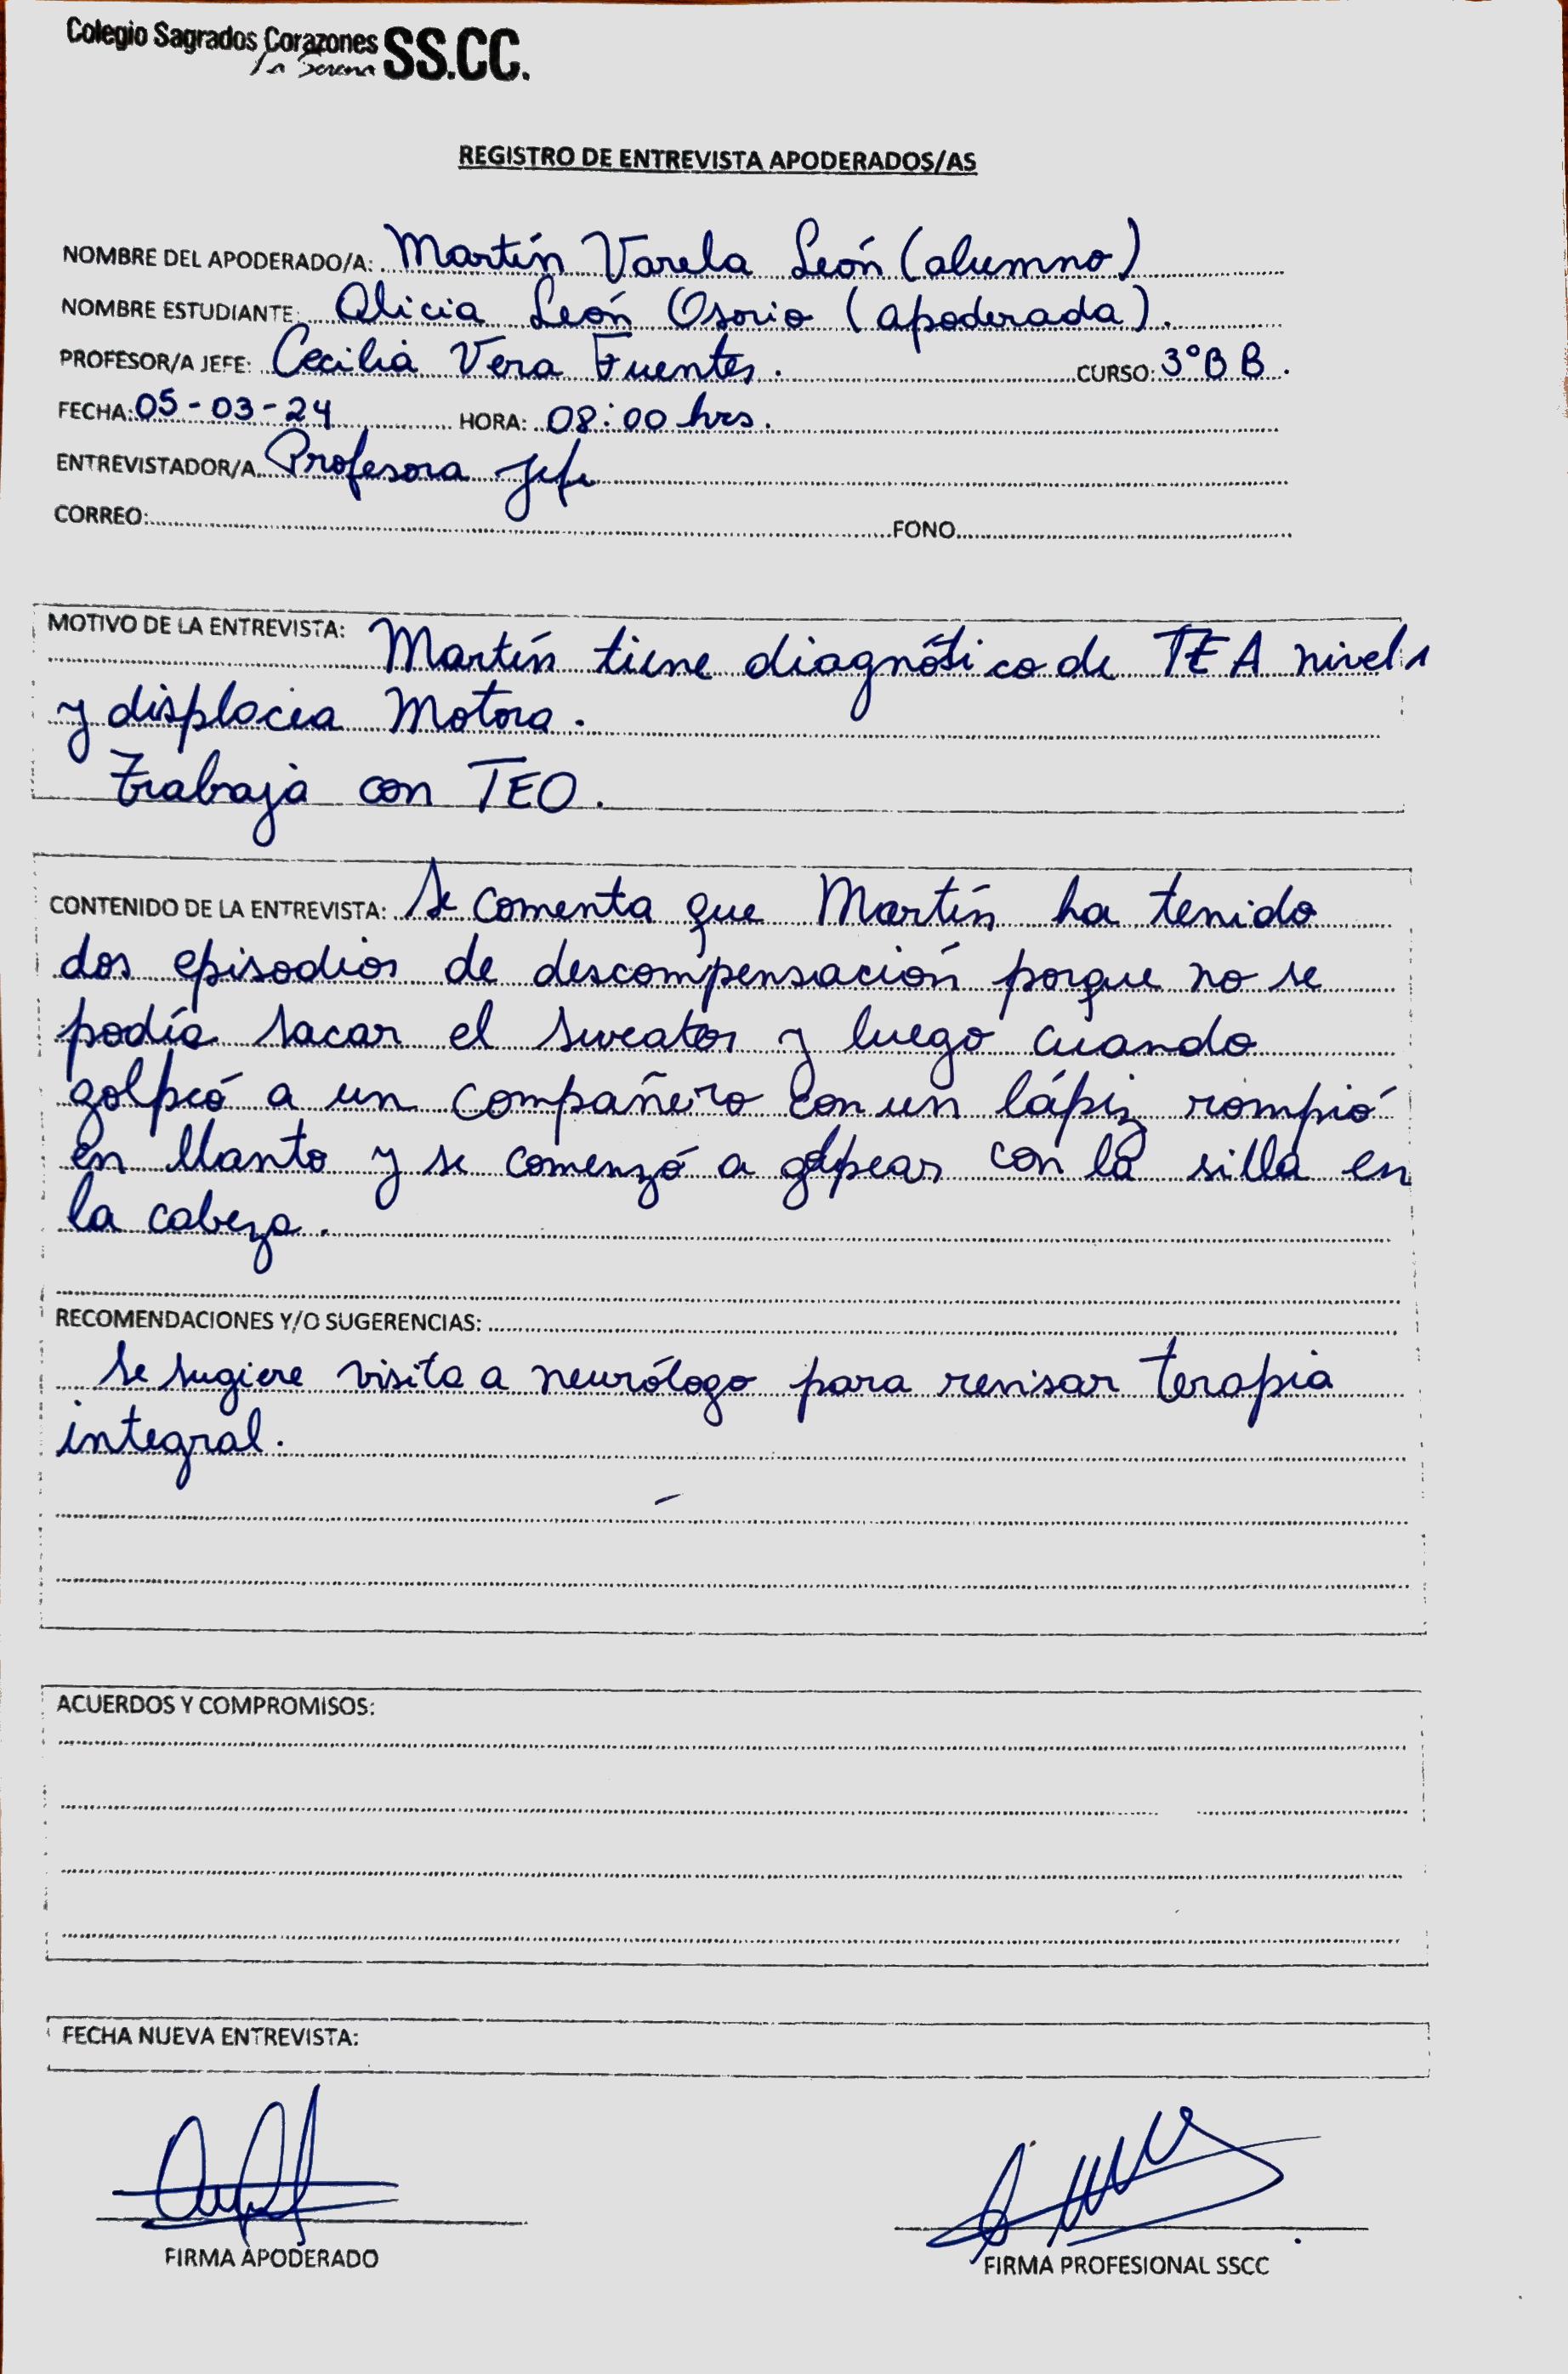 Colegio Sagrados Corazones SS.CC.
La Serena
REGISTRO DE ENTREVISTA APODERADOS/AS
NOMBRE DEL APODERADO/A: Martín Varela León (alumno)
NOMBRE ESTUDIANTE: Alicia León Osorio (apoderada).
PROFESOR/A JEFE: Cecilia Vera Fuentes. CURSO: 3°B B.
FECHA: 05-03-24 HORA: 08:00 hrs.
ENTREVISTADOR/A Profesora Jefe
CORREO: FONO
MOTIVO DE LA ENTREVISTA: Martín tiene diagnóstico de TEA nivel 1
y displacia Motora.
Trabaja con TEO.
CONTENIDO DE LA ENTREVISTA: Se comenta que Martín ha tenido
dos episodios de descompensación porque no se
podía sacar el sweater y luego cuando
golpeó a un compañero con un lápiz rompió
en llanto y se comenzó a golpear con la silla en
la cabeza.
RECOMENDACIONES Y/O SUGERENCIAS:
Se sugiere visita a neurólogo para revisar terapia
integral.
ACUERDOS Y COMPROMISOS:
FECHA NUEVA ENTREVISTA:
FIRMA APODERADO FIRMA PROFESIONAL SSCC